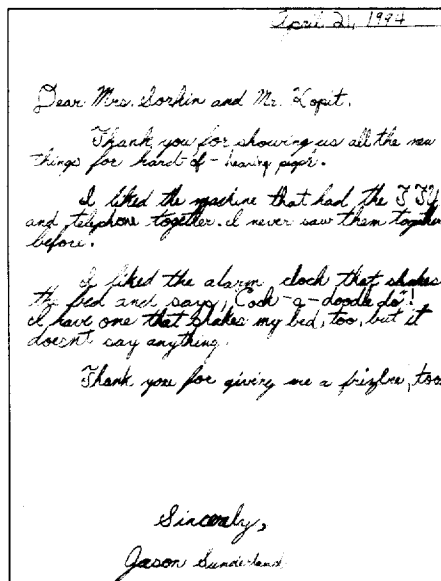 April 21, 1994
Dear Mrs. Sorkin and Mr. Kopit.
Thank you for showing us all the new
things for hard-of-hearing
I liked the machine that had the TTY
and telephone together. I never saw them together
before.
I liked the alarm clock that shakes
the bed and says, "Cock-a-doodle do"!
I have one that shakes my bed, too, but it
doesn't say anything.
Thank you for giving me a frizbee, too
Sincerely,
Jason Sunderland